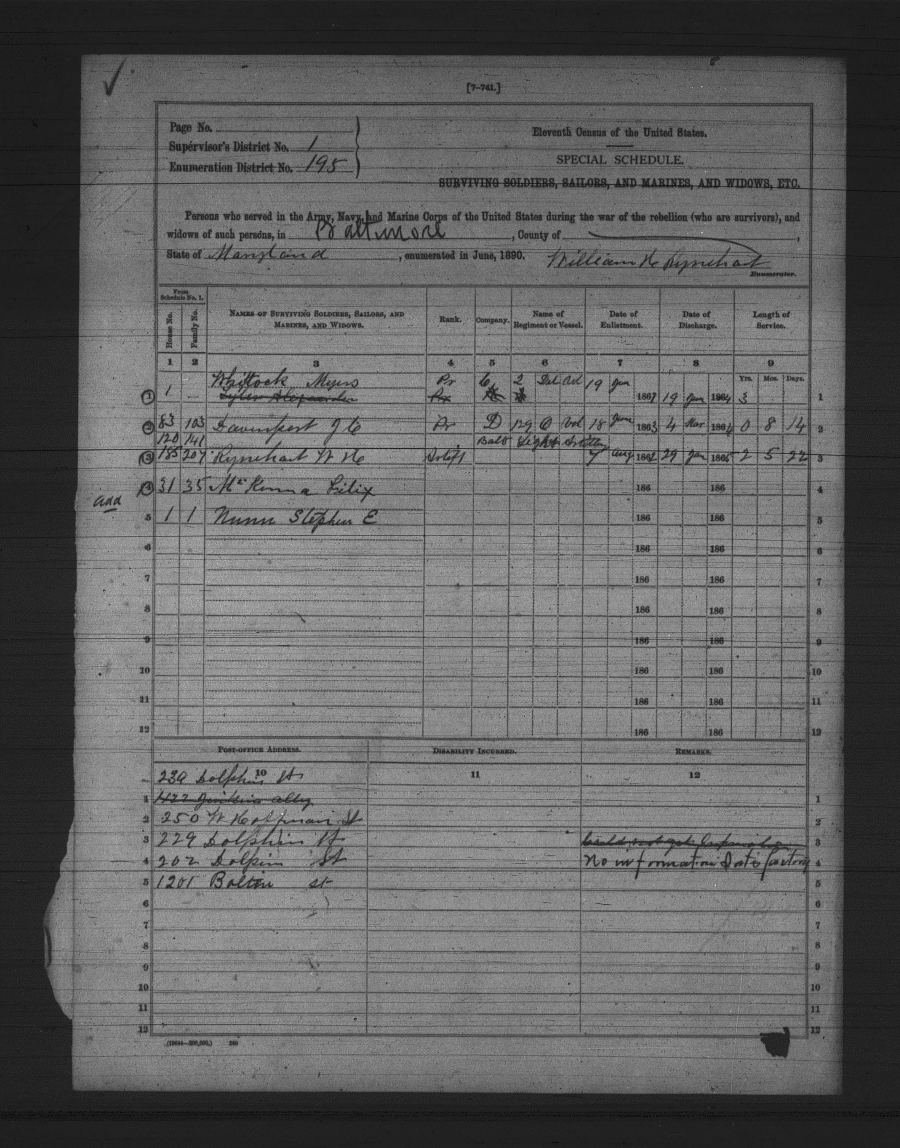 [7-741.]
Page No.
Supervisor's District No. 1
Enumeration District No. 195
Eleventh Census of the United States.
SPECIAL SCHEDULE.
SURVIVING SOLDIERS, SAILORS, AND MARINES, AND WIDOWS, ETC.
Persons who served in the Army, Navy, and Marine Corps of the United States during the war of the rebellion (who are survivors), and
widows of such persons, in Baltimore, County of
State of Maryland, enumerated in June, 1890. William H Rynehart
Enumerator.
From Schedule No. 1.
House No. Family No. NAMES OF SURVIVING SOLDIERS, SAILORS, AND MARINES, AND WIDOWS. Rank. Company. Name of Regiment or Vessel. Date of Enlistment. Date of Discharge. Length of Service.
1 2 3 4 5 6 7 8 9
Yrs. Mos. Days.
Whittock Myers Pr C 2 Del Vol 19 Jun
1 1 186 19 Jun 1864 3 1
2 83 103 Davenport J C Pr D 129 O Vol 18 June 1863 4 Mar 186 0 8 14 2
120 141 Balt Light Artlly
3 185 207 Rynehart W H 7 Aug 1862 29 Jan 1865 2 5 22 3
4 31 35 McKenna Filix 186 186 4
add
5 1 1 Nunn Stephen E 186 186 5
6 186 186 6
7 186 186 7
8 186 186 8
9 186 186 9
10 186 186 10
11 186 186 11
12 186 186 12
POST-OFFICE ADDRESS. DISABILITY INCURRED. REMARKS.
10 11 12
239 Dolphin St
1 422 Jenkins alley 1
2 250 W Hoffman St 2
3 229 Dolphin St Could not get Information 3
4 202 Dolpin St No information Satisfactory 4
5 1201 Bolton st 5
6 6
7 7
8 8
9 9
10 10
11 11
12 12